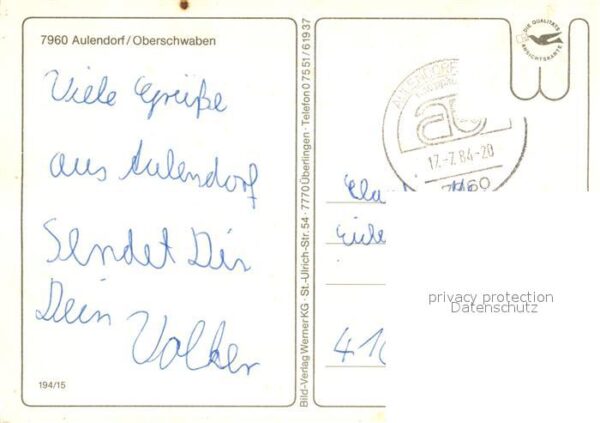 7960 Aulendorf/Oberschwaben
Viele Grüße
aus Aulendorf
Sendet Dir
Dein Volker
194/15
Bild-Verlag Werner KG · St.-Ulrich-Str. 54 · 7770 Überlingen · Telefon 07551/61937
DIE QUALITÄTS
ANSICHTSKARTE
17.-7.84-20
privacy protection
Datenschutz